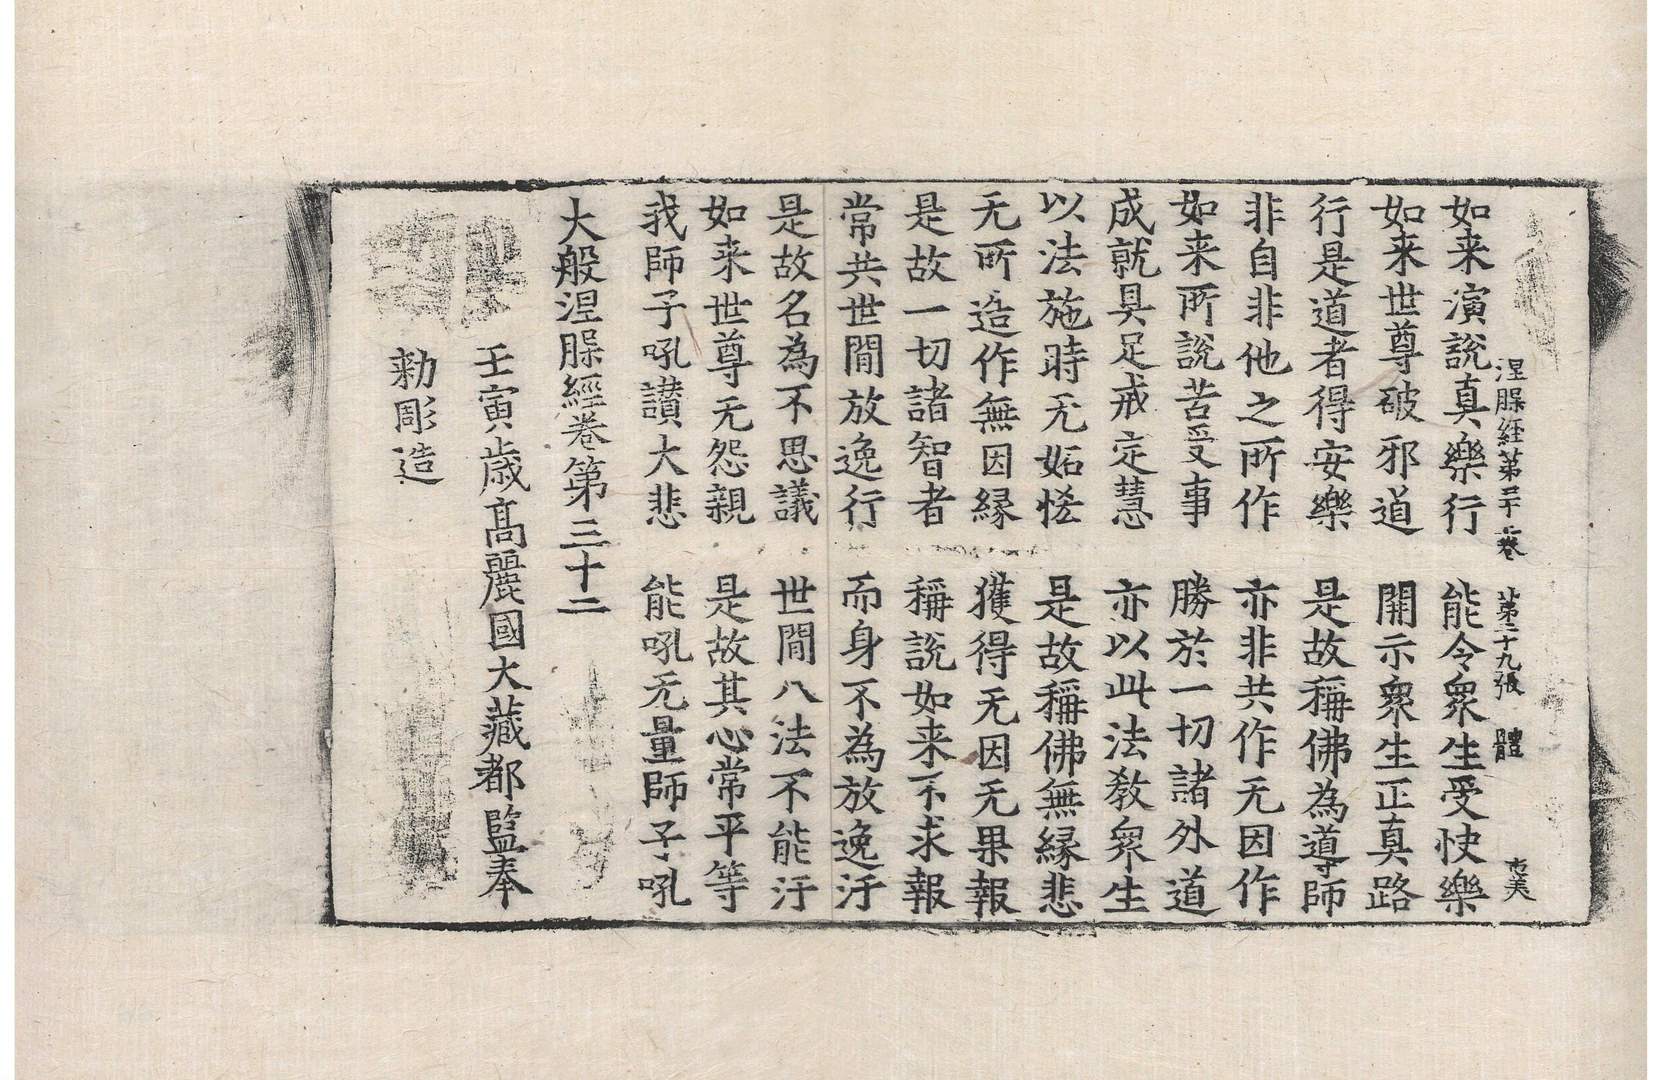 涅槃經第三十二卷 第二十九張 體
如来演說真樂行 能令衆生受快樂
如来世尊破邪道 開示衆生正真路
行是道者得安樂 是故稱佛為導師
非自非他之所作 亦非共作无因作
如来所說苦受事 勝於一切諸外道
成就具足戒定慧 亦以此法教衆生
以法施時无妬悋 是故稱佛無縁悲
无所造作無因縁 獲得无因无果報
是故一切諸智者 稱說如来不求報
常共世間放逸行 而身不為放逸汙
是故名為不思議 世間八法不能汙
如来世尊无怨親 是故其心常平等
我師子吼讃大悲 能吼无量師子吼
大般涅槃經卷第三十二
壬寅歳髙麗國大藏都監奉
勑彫造